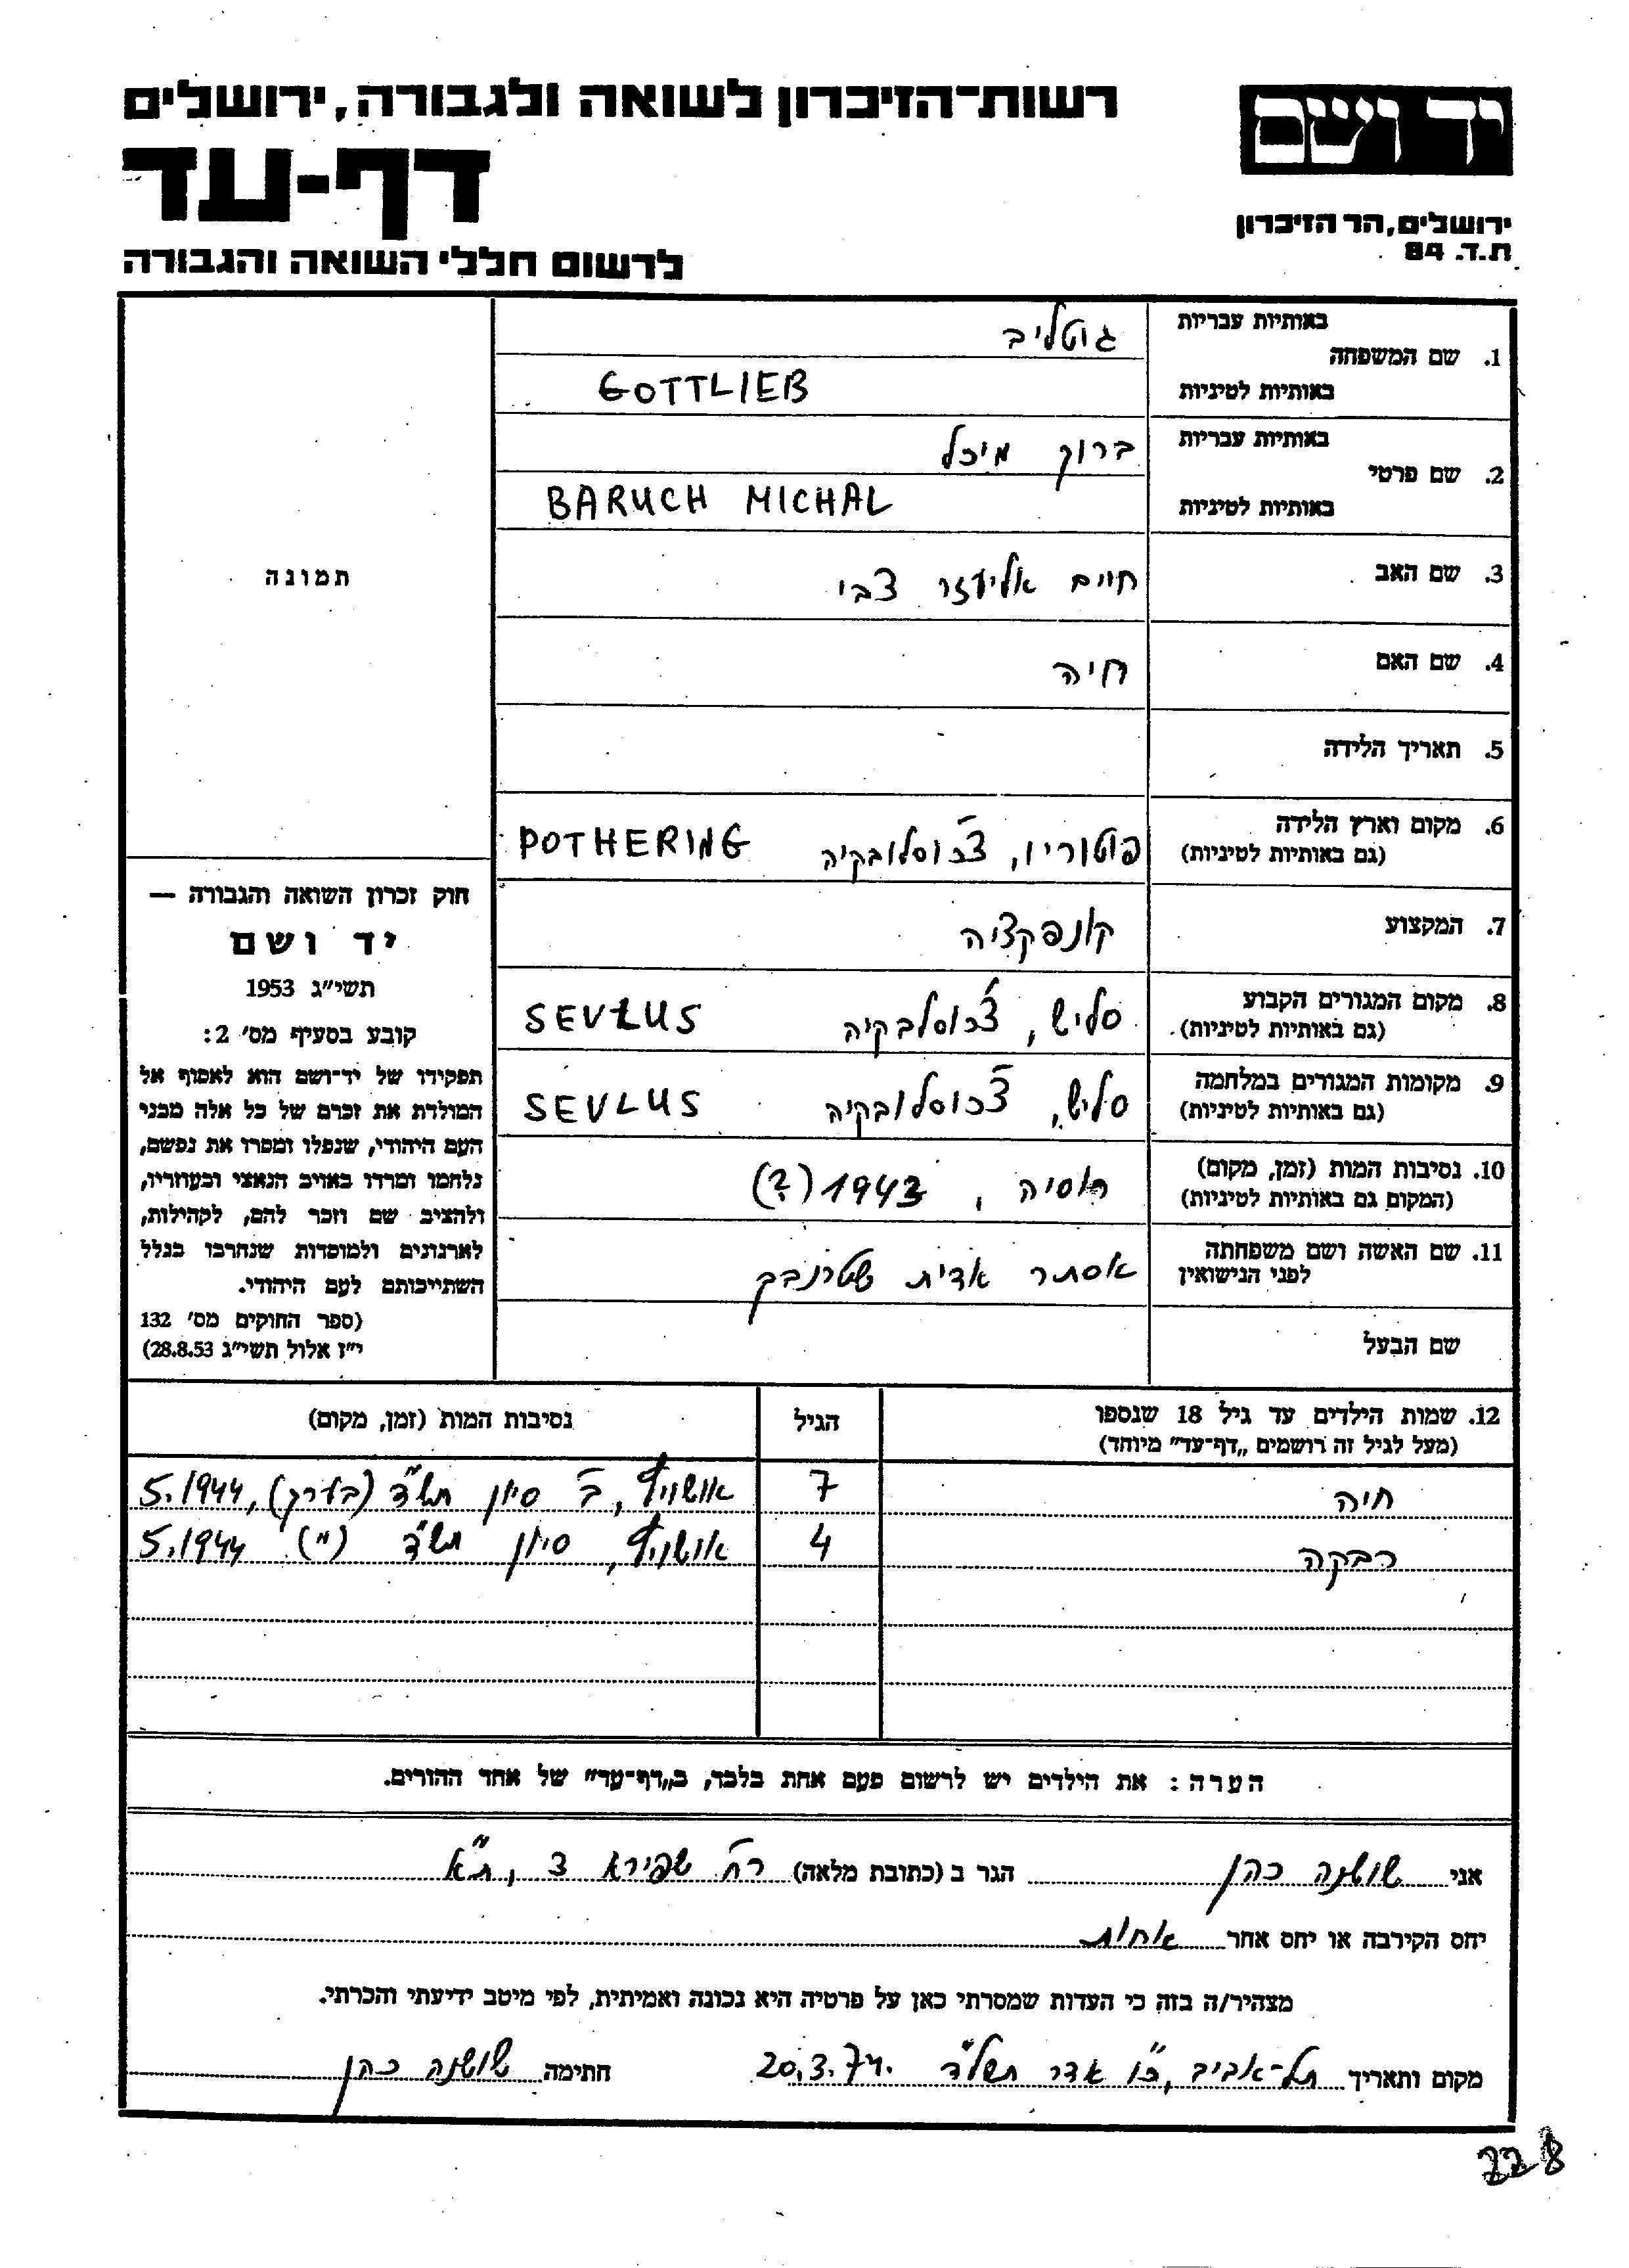 רשות־הזיכרון לשואה ולגבורה, ירושלים
דף-עד
לרשום חללי השואה והגבורה
יד ושם
ירושלים, הר הזיכרון
ת.ד. 84
באותיות עבריות גוטליב
1. שם המשפחה
באותיות לטיניות GOTTLIEB
באותיות עבריות ברוך מיכל
2. שם פרטי
באותיות לטיניות BARUCH MICHAL
3. שם האב חיים אליעזר צבי
4. שם האם חיה
5. תאריך הלידה
6. מקום וארץ הלידה פוטורין, צ'כוסלובקיה POTHERING
(גם באותיות לטיניות)
7. המקצוע קונפקציה
8. מקום המגורים הקבוע סליש, צ'כוסלבקיה SEVLUS
(גם באותיות לטיניות)
9. מקומות המגורים במלחמה סליש, צ'כוסלובקיה SEVLUS
(גם באותיות לטיניות)
10. נסיבות המות (זמן, מקום) רוסיה, 1943 (?)
(המקום גם באותיות לטיניות)
11. שם האשה ושם משפחתה אסתר אדית שטרנבך
לפני הנישואין
שם הבעל
תמונה
חוק זכרון השואה והגבורה —
יד ושם
תשי״ג 1953
קובע בסעיף מס׳ 2:
תפקידו של יד־ושם הוא לאסוף אל
המולדת את זכרם של כל אלה מבני
העם היהודי, שנפלו ומסרו את נפשם,
נלחמו ומרדו באויב הנאצי ובעוזריו,
ולהציב שם וזכר להם, לקהילות,
לארגונים ולמוסדות שנחרבו בגלל
השתייכותם לעם היהודי.
(ספר החוקים מס׳ 132
י״ז אלול תשי״ג 28.8.53)
12. שמות הילדים עד גיל 18 שנספו הגיל נסיבות המות (זמן, מקום)
(מעל לגיל זה רושמים „דף־עד״ מיוחד)
חיה 7 אושויץ, ב' סיון תש"ד (בערך), 5.1944
רבקה 4 אושויץ, סיון תש"ד (״) 5.1944
הערה: את הילדים יש לרשום פעם אחת בלבד, ב„דף־עד״ של אחד ההורים.
אני שושנה כהן הגר ב (כתובת מלאה) רח' שפירא 3, ת"א
יחס הקירבה או יחס אחר אחות
מצהיר/ה בזה כי העדות שמסרתי כאן על פרטיה היא נכונה ואמיתית, לפי מיטב ידיעתי והכרתי.
מקום ותאריך תל-אביב, כ"ו אדר תשל"ד 20.3.74. חתימה שושנה כהן
228